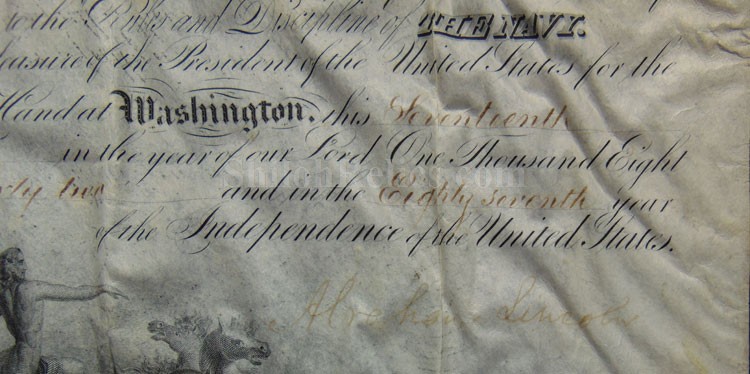 to the Rules and Discipline of THE NAVY.
easure of the President of the United States for the
Hand at Washington, this Seventeenth
in the year of our Lord One Thousand Eight
ty two and in the Eighty seventh year
of the Independence of the United States.
Abraham Lincoln